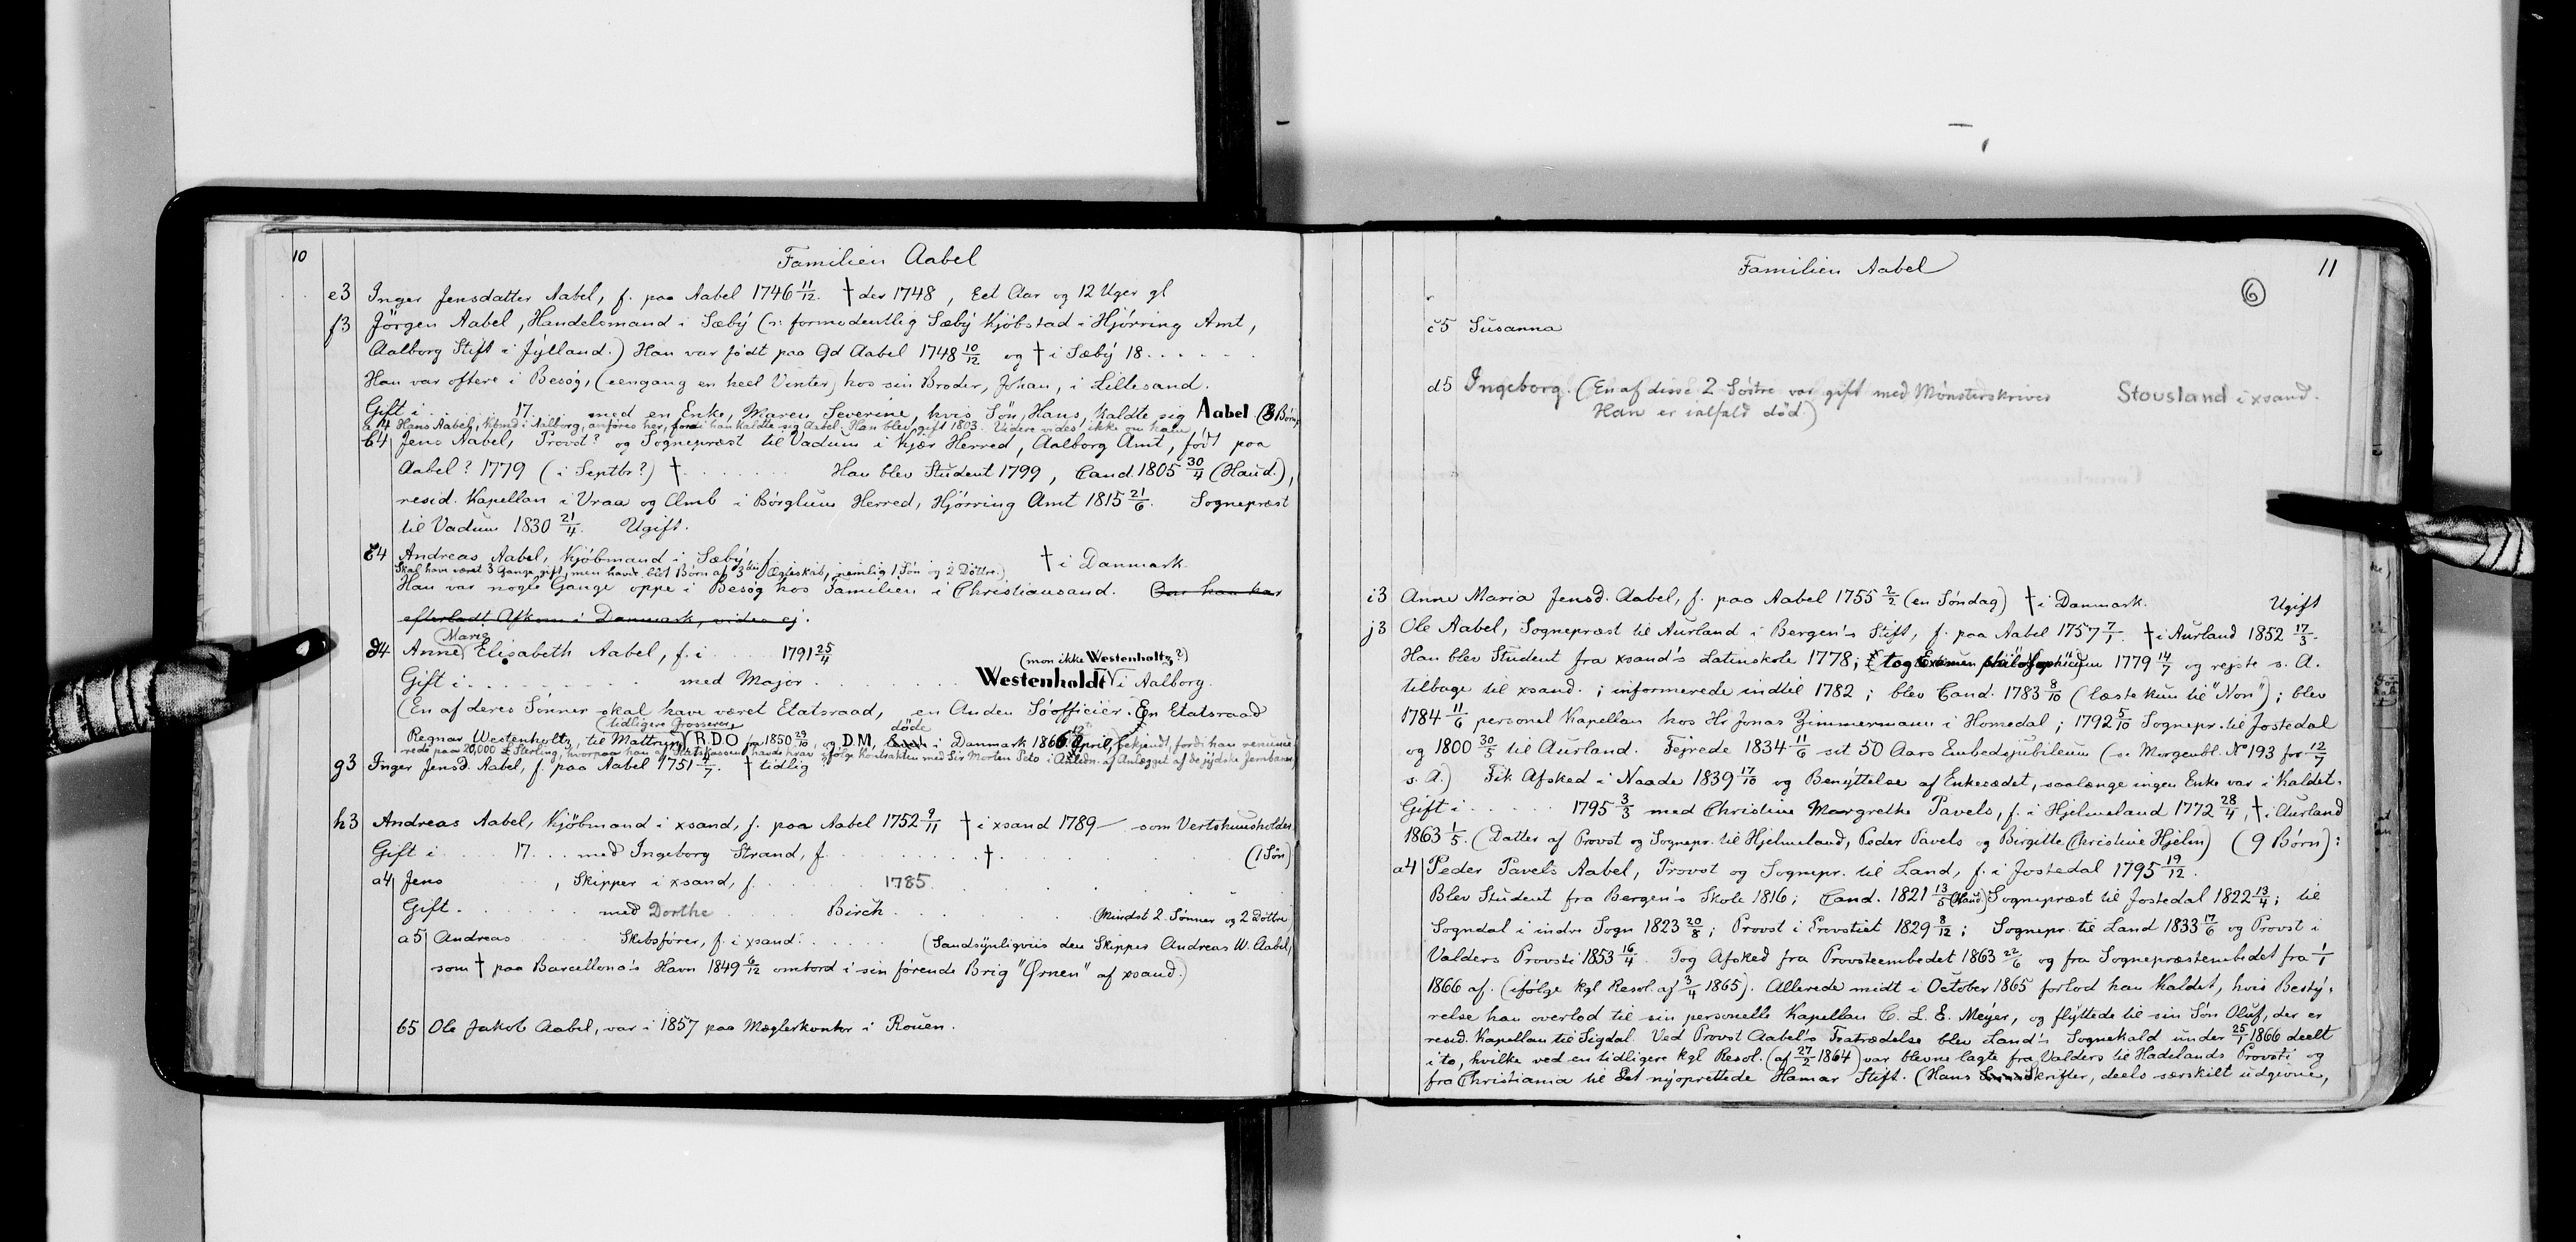 10
Familien Aabel
e3 Inger Jensdatter Aabel, f. paa Aabel 1746 11/12. † der 1748, Eet Aar og 12 Uger gl
f3 Jörgen Aabel, Handelsmand i Sæbÿ (ɔ: formodentlig Sæbÿ Kjöbstad i Hjörring Amt,
Aalborg Stift i Jÿlland.) Han var födt paa Gd Aabel 1748 10/12 og † i Sæbÿ 18......
Han var oftere i Besög, (eengang en heel Vinter) hos sin Broder, Johan, i Lillesand.
Gift i ..... 17. med en Enke, Maren Severine, hvis Sön, Hans, kaldte sig Aabel (3 Börn)
a4 Hans Aabel, Kbmd i Aalborg, anföres her, fordi han kaldte sig Aabel. Han blev gift 1803. Videre vides ikke om ham
b4 Jens Aabel, Provst? og Sognepræst til Vadum i Kjær Herred, Aalborg Amt, födt paa
Aabel? 1779 (i Septbr?) † ....... Han blev Student 1799, Cand. 1805 30/4 (Haud.),
resid. Kapellan i Vraa og Emb i Börglum Herred, Hjörring Amt 1815 21/6. Sognepræst
til Vadum 1830 21/4. Ugift.
c4 Andreas Aabel, Kjöbmand i Sæbÿ, f. † i Danmark.
Skal have været 3 Gange gift, men havde blot Börn af 3die Ægteskab, nemlig 1 Sön og 2 Döttre.)
Han var nogle Gange oppe i Besög hos Familien i Christiansand. Om han har
efterladt Afkom i Danmark, vides ej.
(Marie)
d4 Anne Elisabeth Aabel, f. i 1791 25/4
(mon ikke Westenholtz?)
Gift i.......... med Major ........ Westenholdt i Aalborg.
(En af deres Sönner skal have været Etatsraad, en Anden Söofficier. En Etatsraad
(tidligere Grosserer) döde
Regnar Westenholtz til Mattrup, R.DO fra 1850 29/10, og D.M, i Danmark 1866 April, bekjendt, fordi han renunce
rede paa 20,000 £ Sterling, hvorpaa han af Statskassen havde Krav ifölge Kontrakten med Sir Morten Peto i Anledn. af Anlægget af de jÿdske Jernbaner)
g3 Inger Jensd. Aabel, f. paa Aabel 1751 4/7. † tidlig
h3 Andreas Aabel, Kjöbmand i xsand, f. paa Aabel 1752 9/11 † i xsand 1789 — som Vertshuusholder
Gift i ..... 17... med Ingeborg Strand, f.......... † ........ (1 Sön)
a4 Jens , Skipper i xsand, f. ...... 1785.
Gift. ...... med Dorthe ...... Birch ........ (Mindst 2 Sönner og 2 Döttre
a5 Andreas Skibsförer, f. i xsand. ..... (Sandsÿnligviis den Skipper Andreas W. Aabel,
som † paa Barcellona's Havn 1849 6/12 ombord i sin förende Brig "Ørnen" af xsand.)
b5 Ole Jakob Aabel, var i 1857 paa Mæglerkontor i Rouen.
Familien Aabel
11
6
c5 Susanna
d5 Ingeborg. (En af disse 2 Söstre var gift med Mönsterskriver Stousland i xsand.
Han er ialfald död)
i3 Anne Maria Jensd. Aabel, f. paa Aabel 1755 2/2 (en Söndag) † i Danmark. Ugift
j3 Ole Aabel, Sognepræst til Aurland i Bergen's Stift, f. paa Aabel 1757 7/1. † i Aurland 1852 17/3.
Han blev Student fra xsand's Latinskole 1778; tog Examen philosophicum 1779 14/7 og rejste s. A.
tilbage til xsand. ; informerede indtil 1782 ; blev Cand. 1783 8/10 (læste kun til "Non") ; blev
1784 11/6 personel Kapellan hos Hr Jonas Zimmermann i Homedal ; 1792 5/10 Sognepr. til Jostedal
og 1800 30/5 til Aurland. Fejrede 1834 11/6 sit 50 Aars Embedsjubileum (se Morgenbl. No 193 for 12/7
s. A.) Fik Afsked i Naade 1839 17/10 og Benÿttelse af Enkesædet, saalænge ingen Enke var i Kaldet.
Gift i ...... 1795 3/3 med Christine Margrethe Pavels, f. i Hjelmeland 1772 28/4, † i Aurland
1863 1/5. (Datter af Provst og Sognepr. til Hjelmeland, Peder Pavels og Birgitte Christine Hjelm) (9 Börn):
a4 Peder Pavels Aabel, Provst og Sognepr. til Land, f. i Jostedal 1795 19/12.
Blev Student fra Bergen's Skole 1816; Cand. 1821 13/5 (Haud.) Sognepræst til Jostedal 1822 13/4; til
Sogndal i indre Sogn 1823 20/8; Provst i Provstiet 1829 8/12; Sognepr. til Land 1833 17/6 og Provst i
Valders Provsti 1853 16/4. Tog Afsked fra Provsteembedet 1863 22/6 og fra Sognepræstembedet fra 1/1
1866 af. (ifölge kgl Resol. af 3/4 1865). Allerede midt i October 1865 forlod han Kaldet, hvis Bestÿ-
relse han overlod til sin personelle Kapellan C. L. E. Meÿer, og flÿttede til sin Sön Oluf, der er
resid. Kapellan til Sigdal. Ved Provst Aabel's Fratrædelse blev Land's Sognekald under 25/1 1866 deelt
i to, hvilke ved en tidligere kgl Resol. (af 27/2 1864) var blevne lagte fra Valders til Hadelands Provsti og
fra Christiania til det nÿoprettede Hamar Stift. (Hans Skrifter, deels særskilt udgivne,